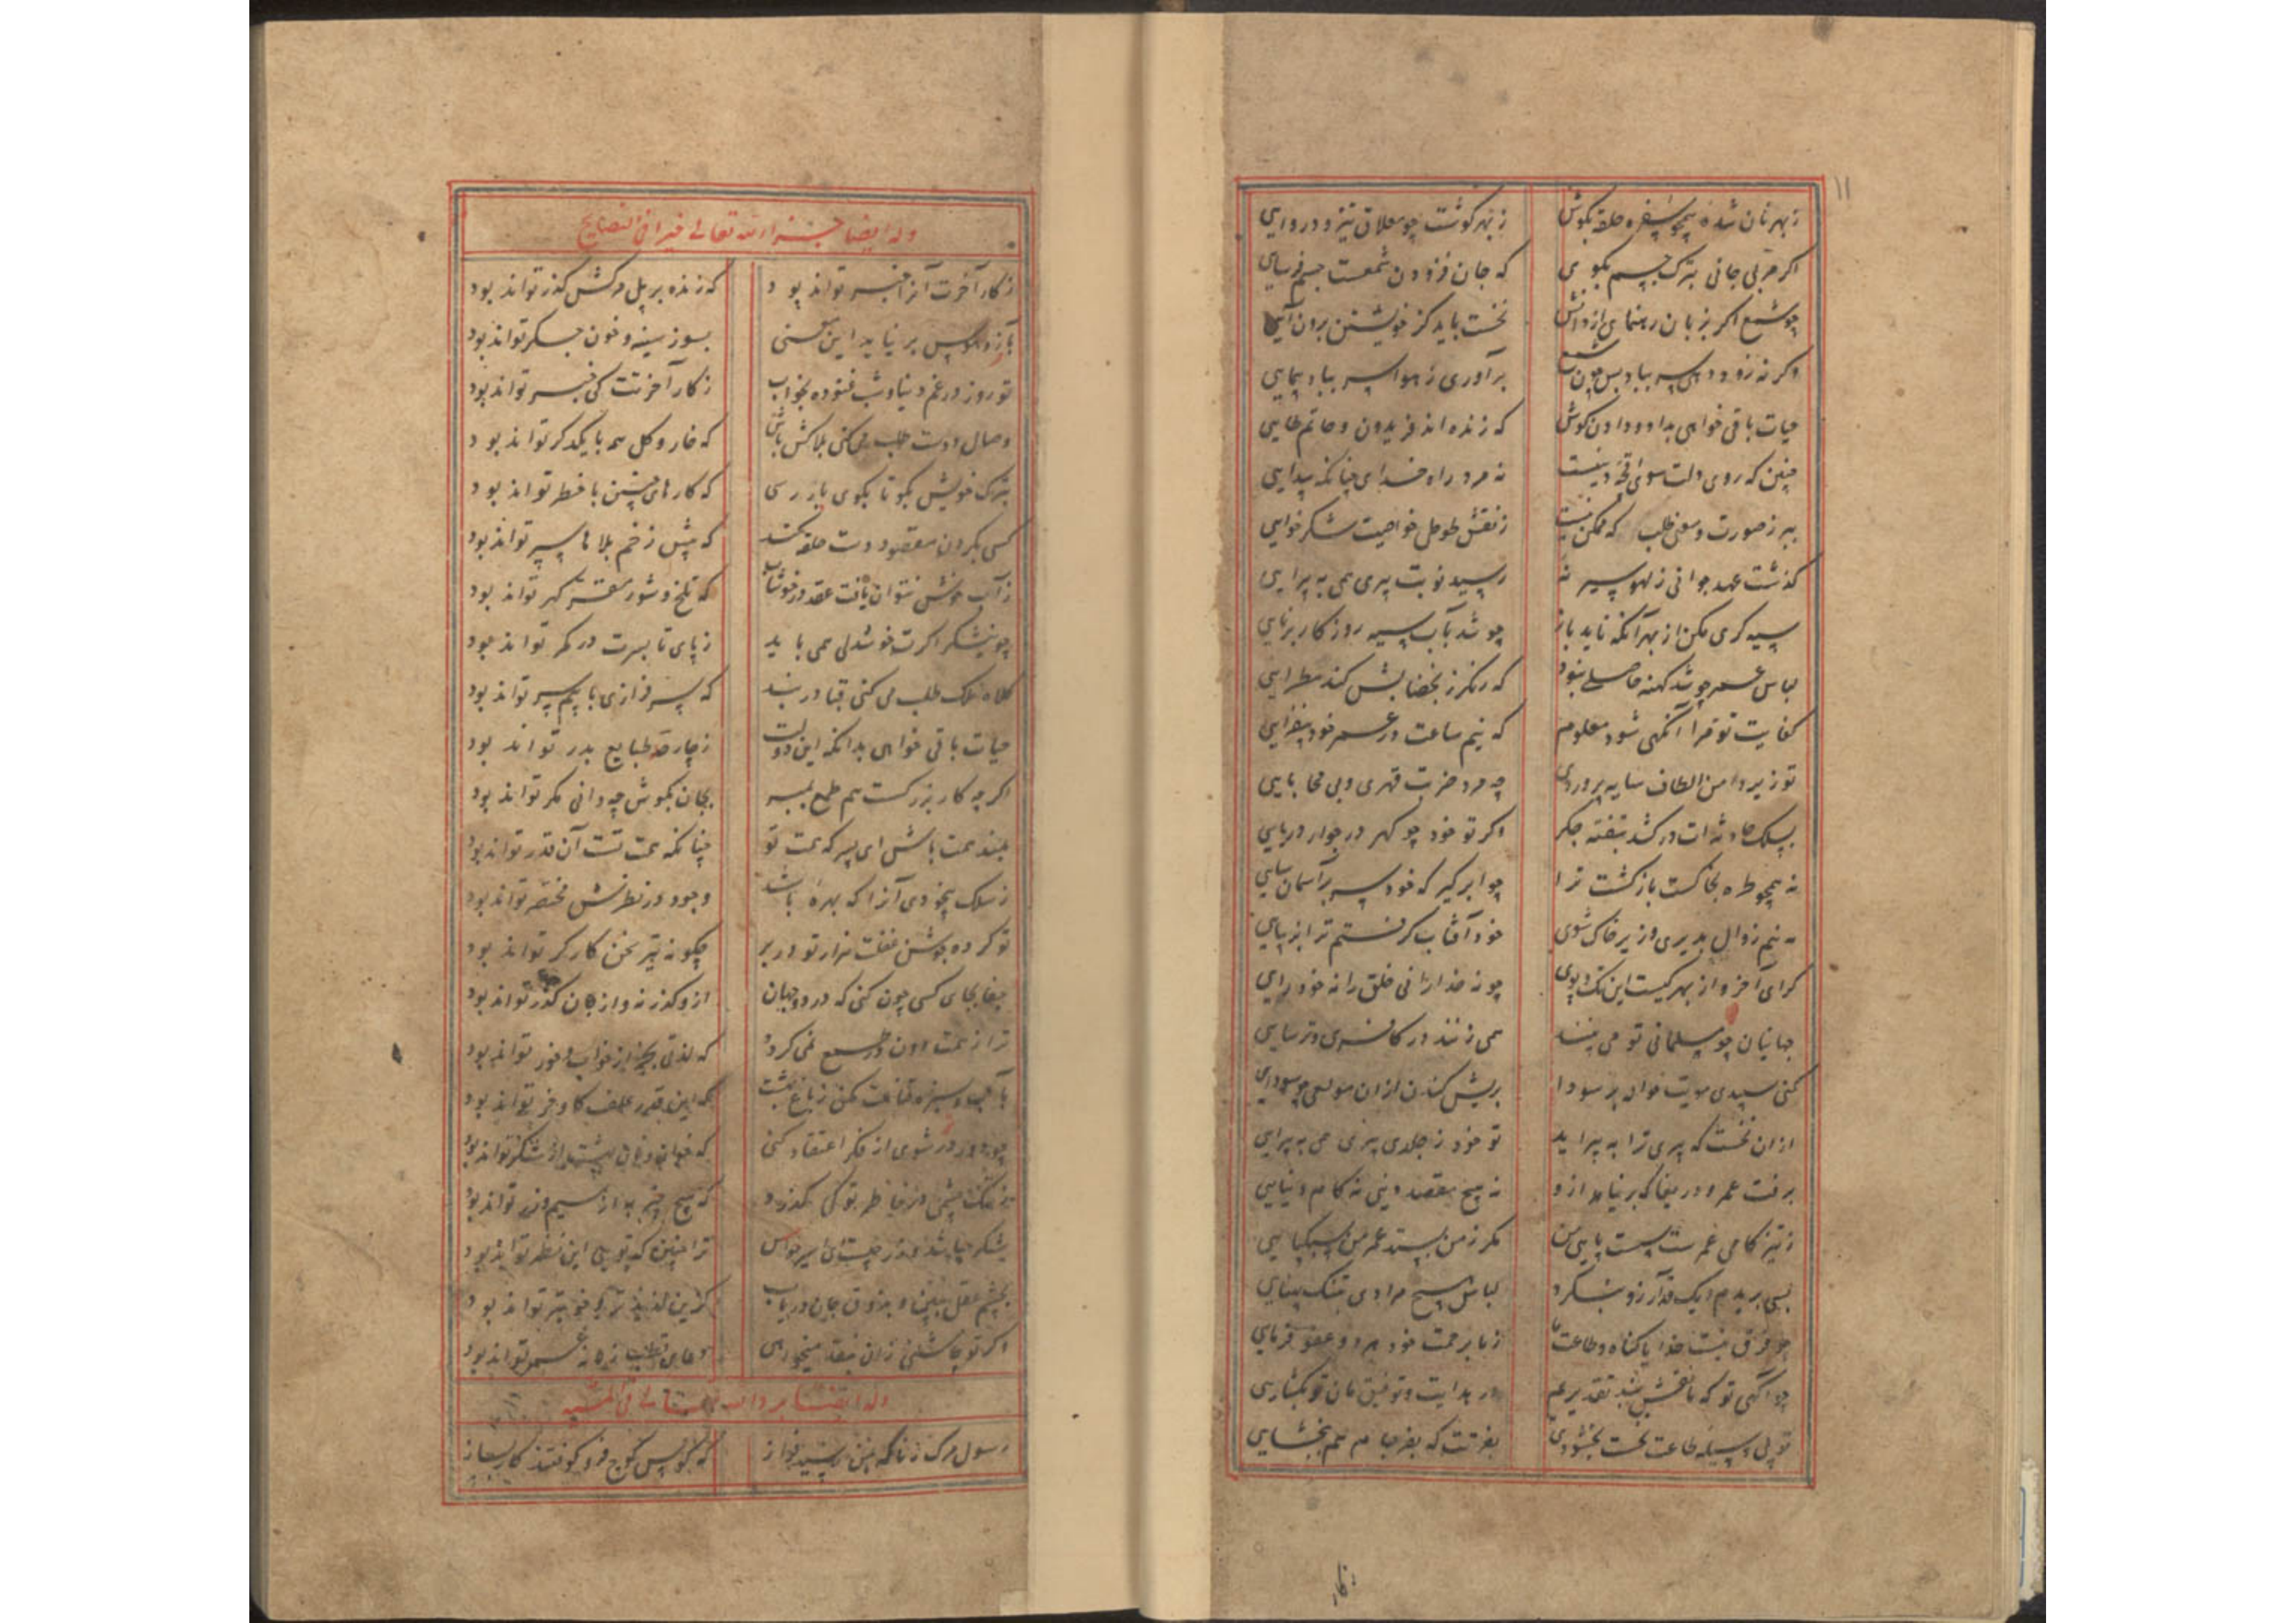 ۱۱
ز بهر نان شده همچو سفره حلقه بگوش ز بهر گوشت چو معلاق تیز و دروایی
اگر مربی جانی بترک جسم بگوی که جان فزودن شمعست جسم فرسایی
چو شمع اگر بزبان رهنمایی از دانش نخست باید کز خویشتن برون آیی
وگر نه زود دهی سر بباد بس چون شمع برآوری ز هوا سر بباد پیمایی
حیات باقی خواهی بداد و دادن کوش که زنده اند فریدون و حاتم طایی
چنین که روی دلت سوی نیست نه مرد راه خدای چنانکه پیدایی
ببر ز صورت و معنی طلب که ممکن نیست ز نقش طوطی خواهیت شکر خوایی
گذشت عهد جوانی ز لهو سیر نه رسید نوبت پیری همی به پیرایی
سیه گری مکن از بهر آنکه ناید باز چو شد بآب سیه روزگار برنایی
لباس عمر چو شد کهنه حاصلی نبود که رنگرز بخضابش کند مطرایی
کفایت تو مرا آنگهی شود معلوم که نیم ساعت در عمر خود بیفزایی
تو زیر دامن الطاف سایه پروردی چه مرد ضربت قهری و بی محابایی
بسلک حادثه ات درکشد بتفته جگر اگر تو خود چو گهر در جوار دریایی
نه همچو قطره بخاکست بازگشت ترا چو ابر گیر که خود سر بر آسمان سایی
نه نیم زوال پذیری و زیر خاک شوی خود آفتاب گرفتم ترا بزیبایی
گرای آخر و از بهر کیست این تک و پوی چو نه خدا را نی خلق را نه خود رایی
جهانیان چو مسلمانی تو می بینند همی زنند در کافری و ترسایی
کنی سپیدی مویت خوان پر سودا بریش کندن ازان مولعی چو سودایی
ازان نخست که پیری ترا به پیراید تو خود ز جلدی پیری همی به پیرایی
برفت عمر و دریغا که بر نیامد ازو نه هیچ مقصد دینی نه کام دنیایی
ز تیزگامی عمرست سست پایی من مگر ز من بستد عمر من شکیبایی
بسی بریدم لیک قد آرزو نکرد لباس هیچ مرادی بتنگ پهنایی
چو فرق نیست خدایا گناه و طاعت ما ز ما برحمت خود درو عفو فرمایی
چو آگهی تو که ما نقش بند تقدیریم در هدایت و توفیق مان تو بگشایی
تو بی وسیله طاعت نخست بخشودی بعزتت که بفرجام هم ببخشایی
وله ایضا جزاه الله تعالی خیرا فی النصایح
ز کار آخرت آنرا خبر تواند بود که زنده بر پل مرگش گذر تواند بود
بآرزو و هوس بر نیاید این معنی بسوز سینه و خون جگر تواند بود
تو روز در غم دنیا و شب غنوده بخواب ز کار آخرتت کی خبر تواند بود
وصال دوست طلب می کنی بلاکش باش که خار و گل همه با یکدگر تواند بود
بترک خویش بگو تا بکوی یار رسی که کارهای چنین با خطر تواند بود
کسی بگردن مقصود دست حلقه کند که پیش زخم بلاها سپر تواند بود
ز آب خوش نتوان یافت عقد در خوشاب که تلخ و شور مقر گهر تواند بود
چو نیشکر اگرت خوشدلی همی باید ز پای تا بسرت در کمر تواند بود
کلاه ملک طلب می کنی قبا دربند که سرفرازی با بیم سر تواند بود
حیات باقی خواهی بدانکه این دولت ز چار حد طبایع بدر تواند بود
اگر چه کار بزرگست هم طمع مبر بجان بکوش چه دانی مگر تواند بود
بلند همت باش ای پسر که همت تو چنانکه همت تست آن قدر تواند بود
ز سلک بیخودی آنرا که بهره باشد وجود در نظرش مختصر تواند بود
تو کرده جوشن غفلت هزار تو در بر چگونه تیر سخن کارگر تواند بود
جفا بجای کسی چون کنی که در دو جهان ازو گذر نه و از جان گذر تواند بود
ترا ز همت دون در طمع نمی گردد که لذتی بجز از خواب و خور تواند بود
بآب و سبزه قناعت مکن ز باغ بهشت که این قدر علف گاو و خر تواند بود
چو دور شوی از فکر اعتقاد کنی که خوان بهشت از شکر تواند بود
ز تنگ چشمی در خاطر تو کی گذرد که هیچ چیز به از سیم و زر تواند بود
ترا چنین که تویی این نظر تواند بود
بچشم عقل ببین و بذوق جان دریاب کزین لذیذتر و خوبتر تواند بود
وله ایضا برد الله
رسول مرگ ز ناگه بمن رسید فراز که کوس کوچ فرو کوفتند کار بساز